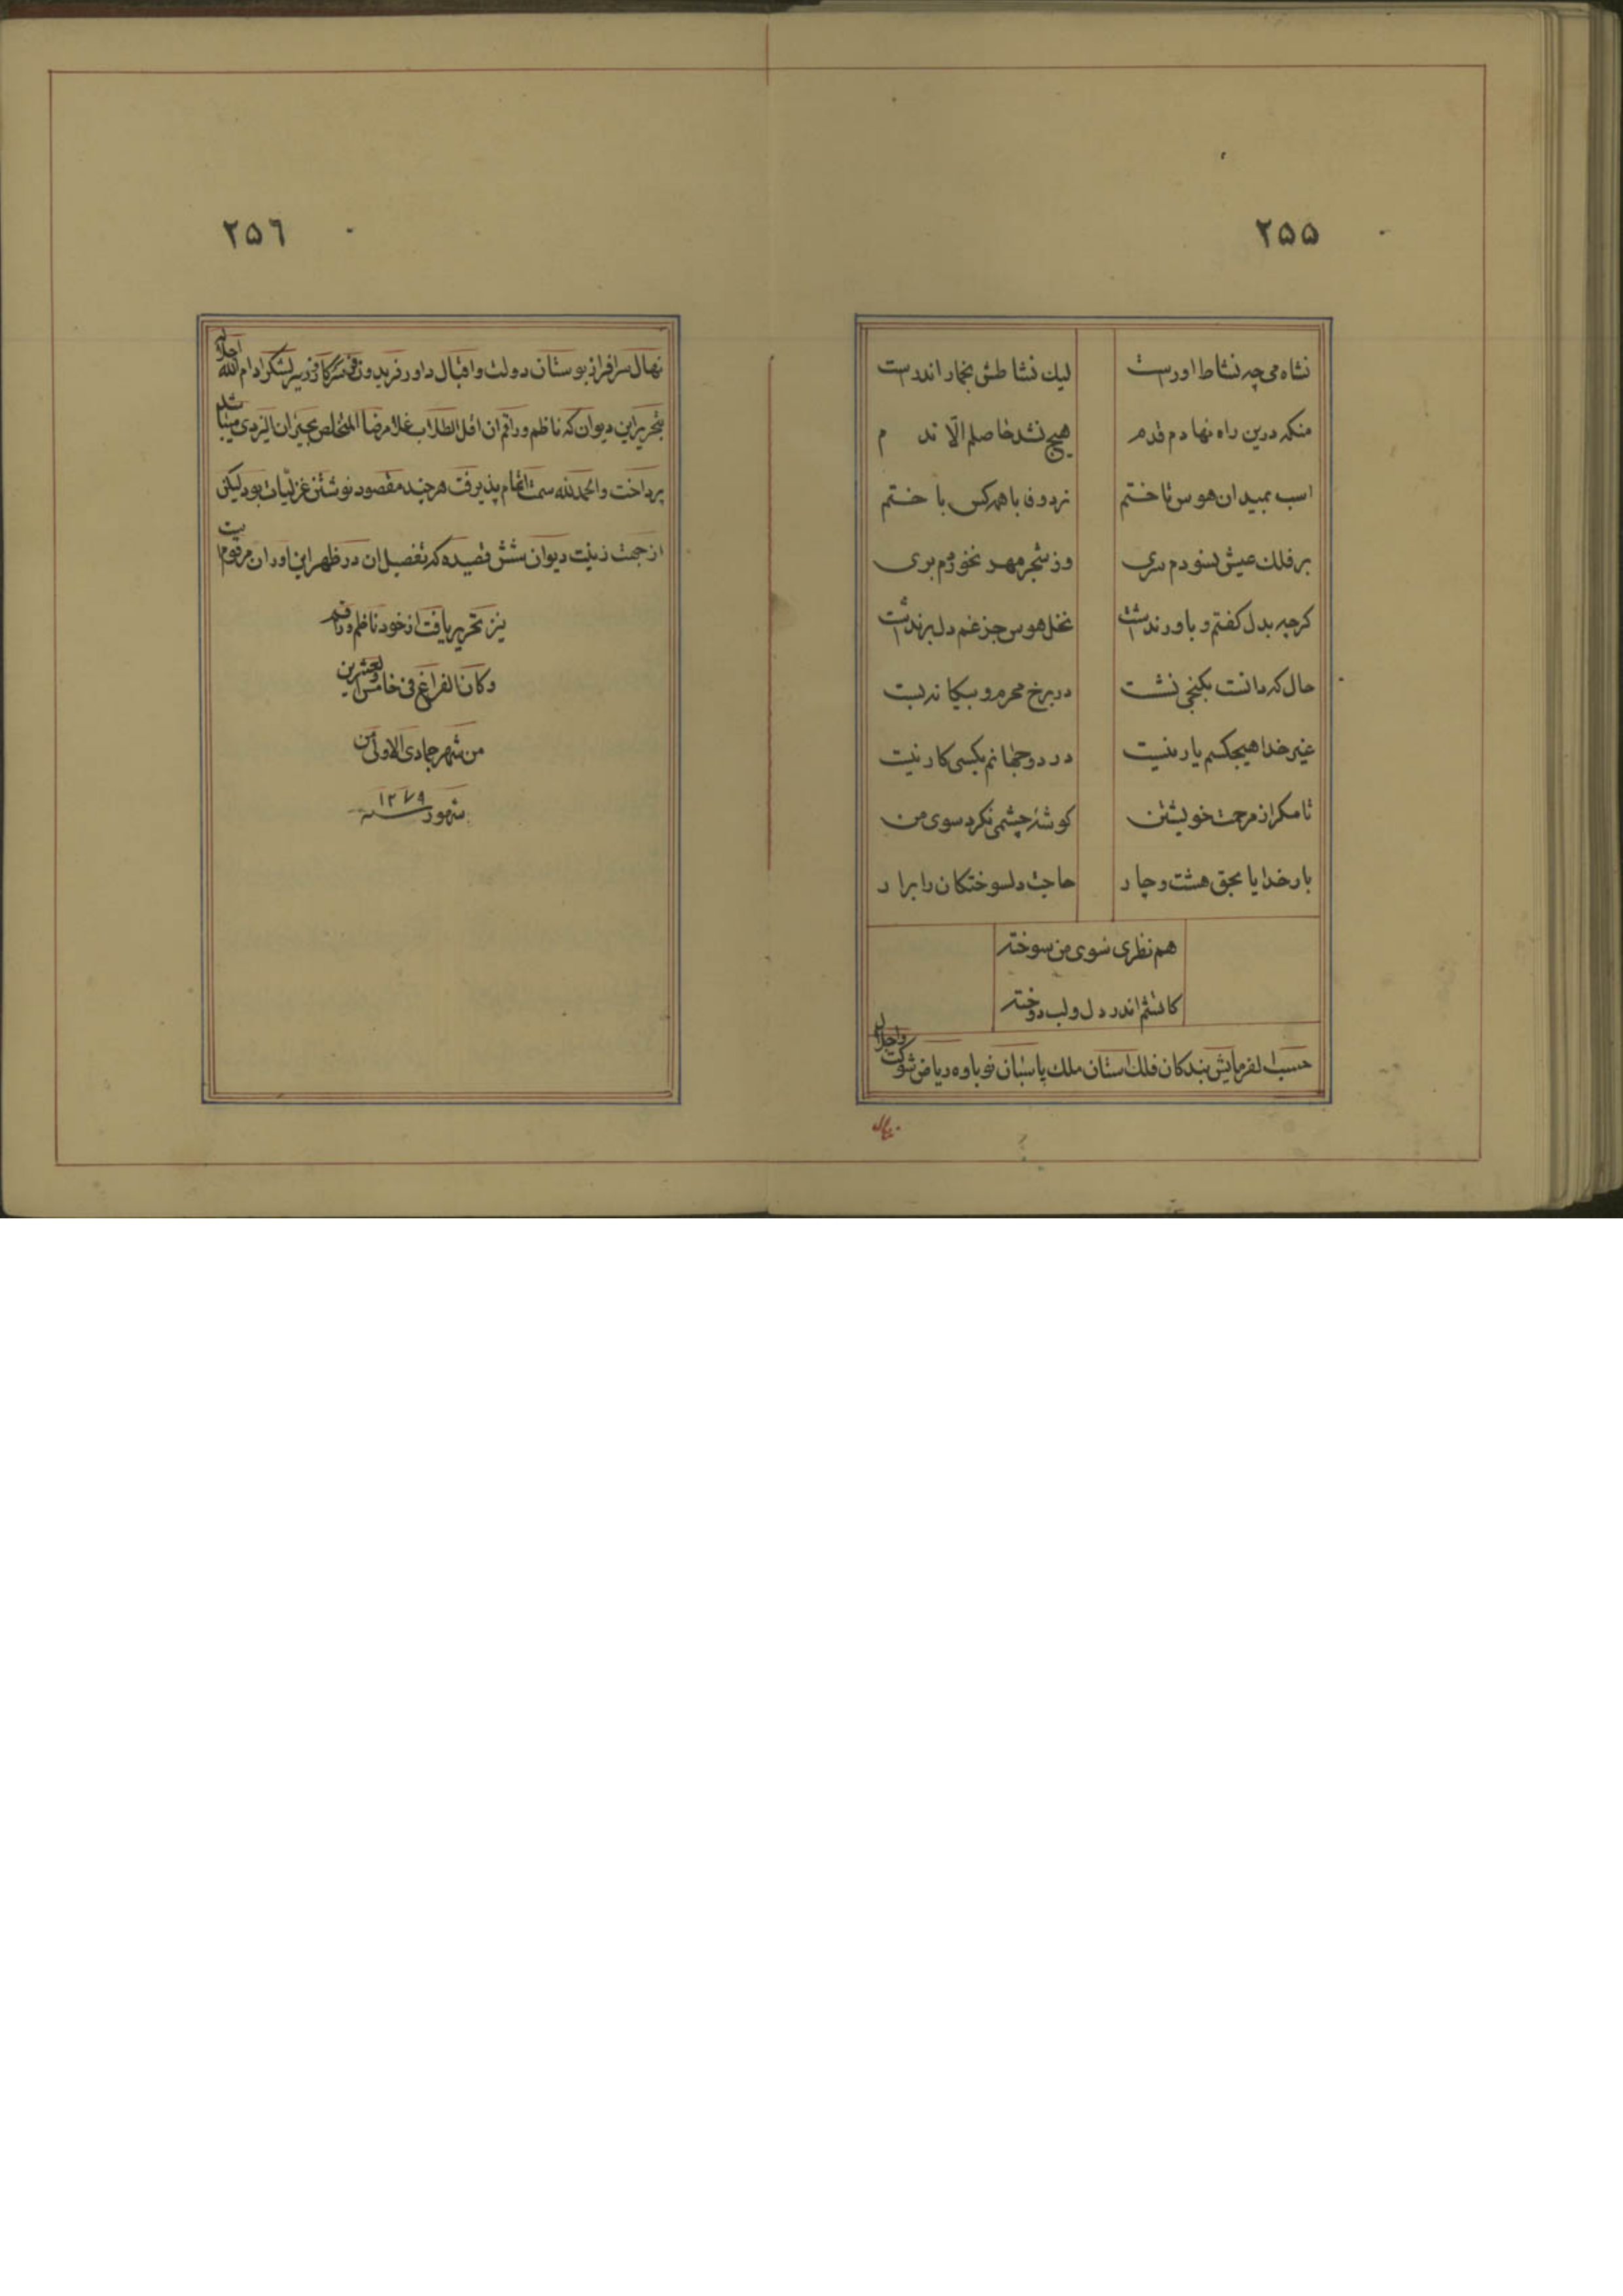 ۲۵۵
نشاه می چه نشاط اورست لیك نشاطش بخمار اندرست
منکه درین راه نهادم قدم هیچ نشد حاصلم الا ندم
اسب بمیدان هوس تاختم نرد وفا با همه کس باختم
بر فلك عیش نسودم سری وز شجر مهر نخوردم بری
کرچه بدل کفتم و باور نداشت نخل هوس جز غم دل بر نداشت
حال که دانست بکنجی نشست در برخ محرم و بیکانه بست
غیر خدا هیچکسم یار نیست در دو جهانم بکسی کار نیست
تا مکر از مرحمت خویشتن کوشهٔ چشمی نکرد سوی من
بار خدایا بحق هشت و چار حاجت دلسوختکان را برار
هم نظری سوی من سوخته
کاتشم اندر دل و لب دوخته
حسب الفرمایش بندکان فلك استان ملك پاسبان نوباوه ریاض شوکت واجلال
نهال
۲۵۶
نهال سرافراز بوستان دولت و اقبال داور فریدون فر سرکار وزیر لشکر ادام الله اجلاله
بتحریر این دیوان که ناظم و راقم ان اقل الطلاب غلامرضا المتخلص بحیران الیزدی میباشد
پرداخت والحمد لله سمت اتمام پذیرفت هر چند مقصود نوشتن غزلیات بود لیکن
از جهت زینت دیوان شش قصیده که تفصیل ان در ظهر این اوراق مرقومست
نیز تحریر یافت از خود ناظم و راقم
وکان الفراغ فی خامس والعشرین
من شهر جمادی الاولی من
شهور سنه ۱۲۷۹